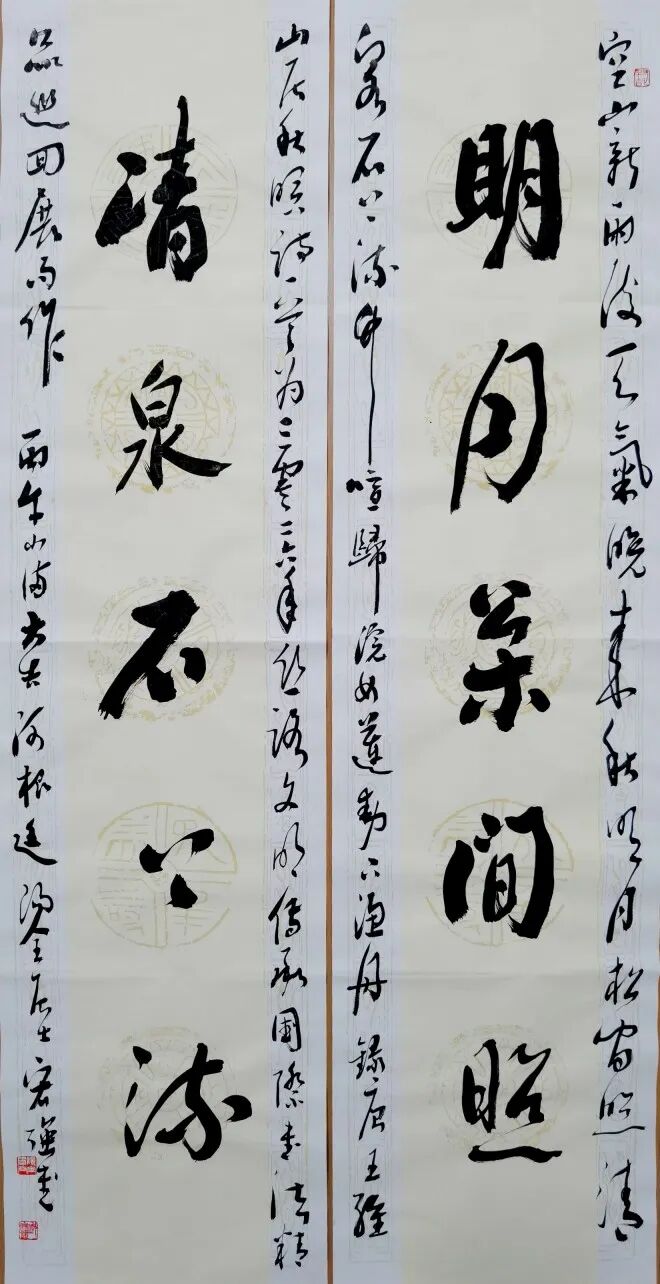 空山新雨後天氣晚來秋明月松間照清
明月枀間照
泉石上流竹喧歸浣女蓮動下漁舟 錄唐王維
山居秋暝詩一首為二零二六年絲路文明傳承國際書法精
清泉石上流
品巡回展而作 丙午小滿大吉 阿根廷 金居士 強書